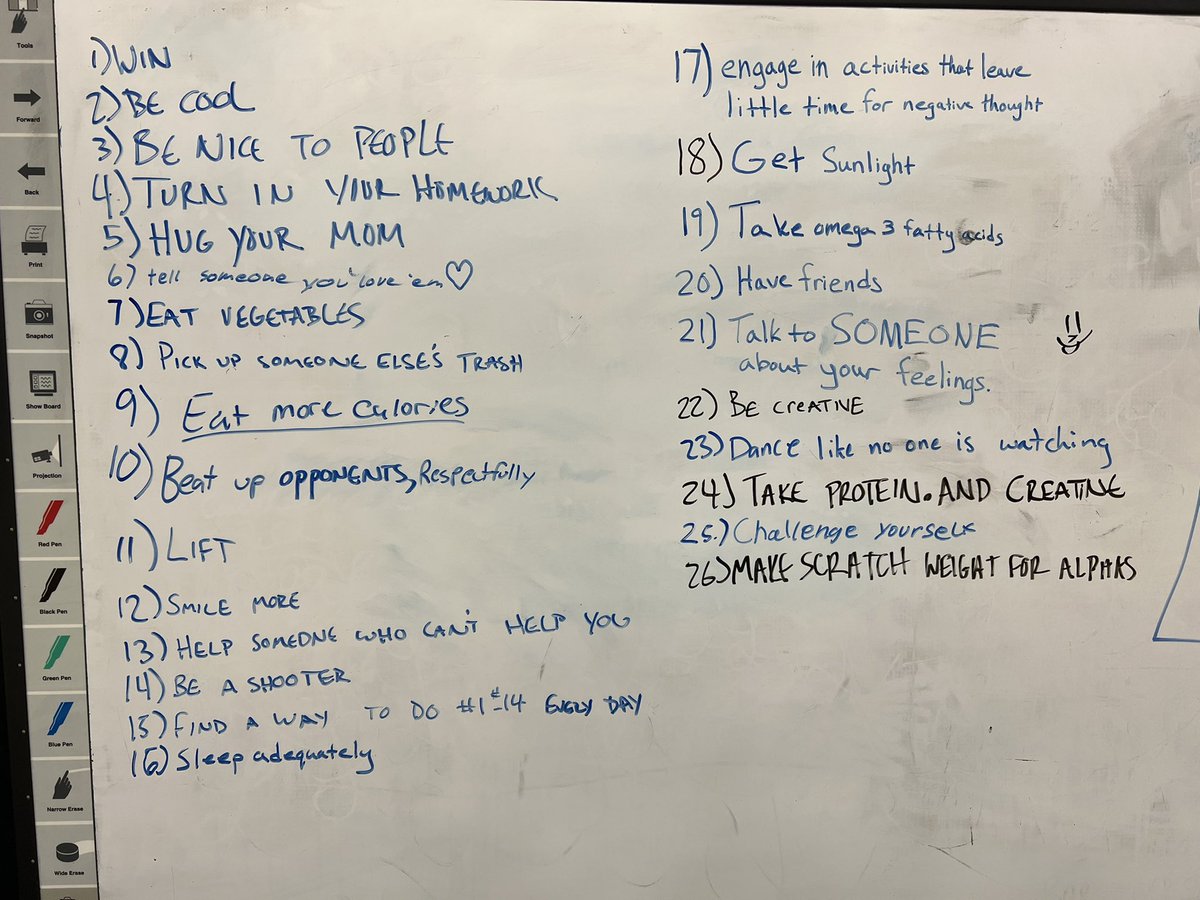 Tools
Forward
Back
Print
Snapshot
Show Board
Projection
Red Pen
Black Pen
Green Pen
Blue Pen
Narrow Erase
Wide Erase
1) WIN
2) BE COOL
3) BE NICE TO PEOPLE
4.) TURN IN YOUR HOMEWORK
5) HUG YOUR MOM
6) tell someone you love 'em ♡
7) EAT VEGETABLES
8) PICK UP SOMEONE ELSE'S TRASH
9) Eat more calories
10) Beat up OPPONENTS, Respectfully
11) LIFT
12) SMILE MORE
13) HELP SOMEONE WHO CAN'T HELP YOU
14) BE A SHOOTER
15) FIND A WAY TO DO #1-#14 EVERY DAY
16) Sleep adequately
17) engage in activities that leave
little time for negative thought
18) Get Sunlight
19) Take omega 3 fatty acids
20) Have friends
21) Talk to SOMEONE
about your feelings.
22) BE CREATIVE
23) Dance like no one is watching
24) TAKE PROTEIN. AND CREATINE
25.) Challenge yourself
26) MAKE SCRATCH WEIGHT FOR ALPHAS